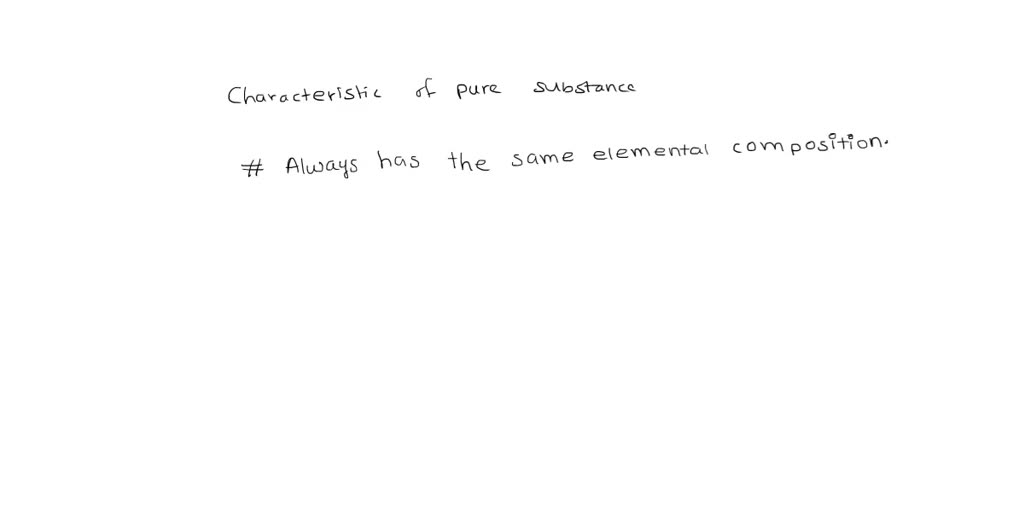 Characteristic of pure substance
# Always has the same elemental composition.